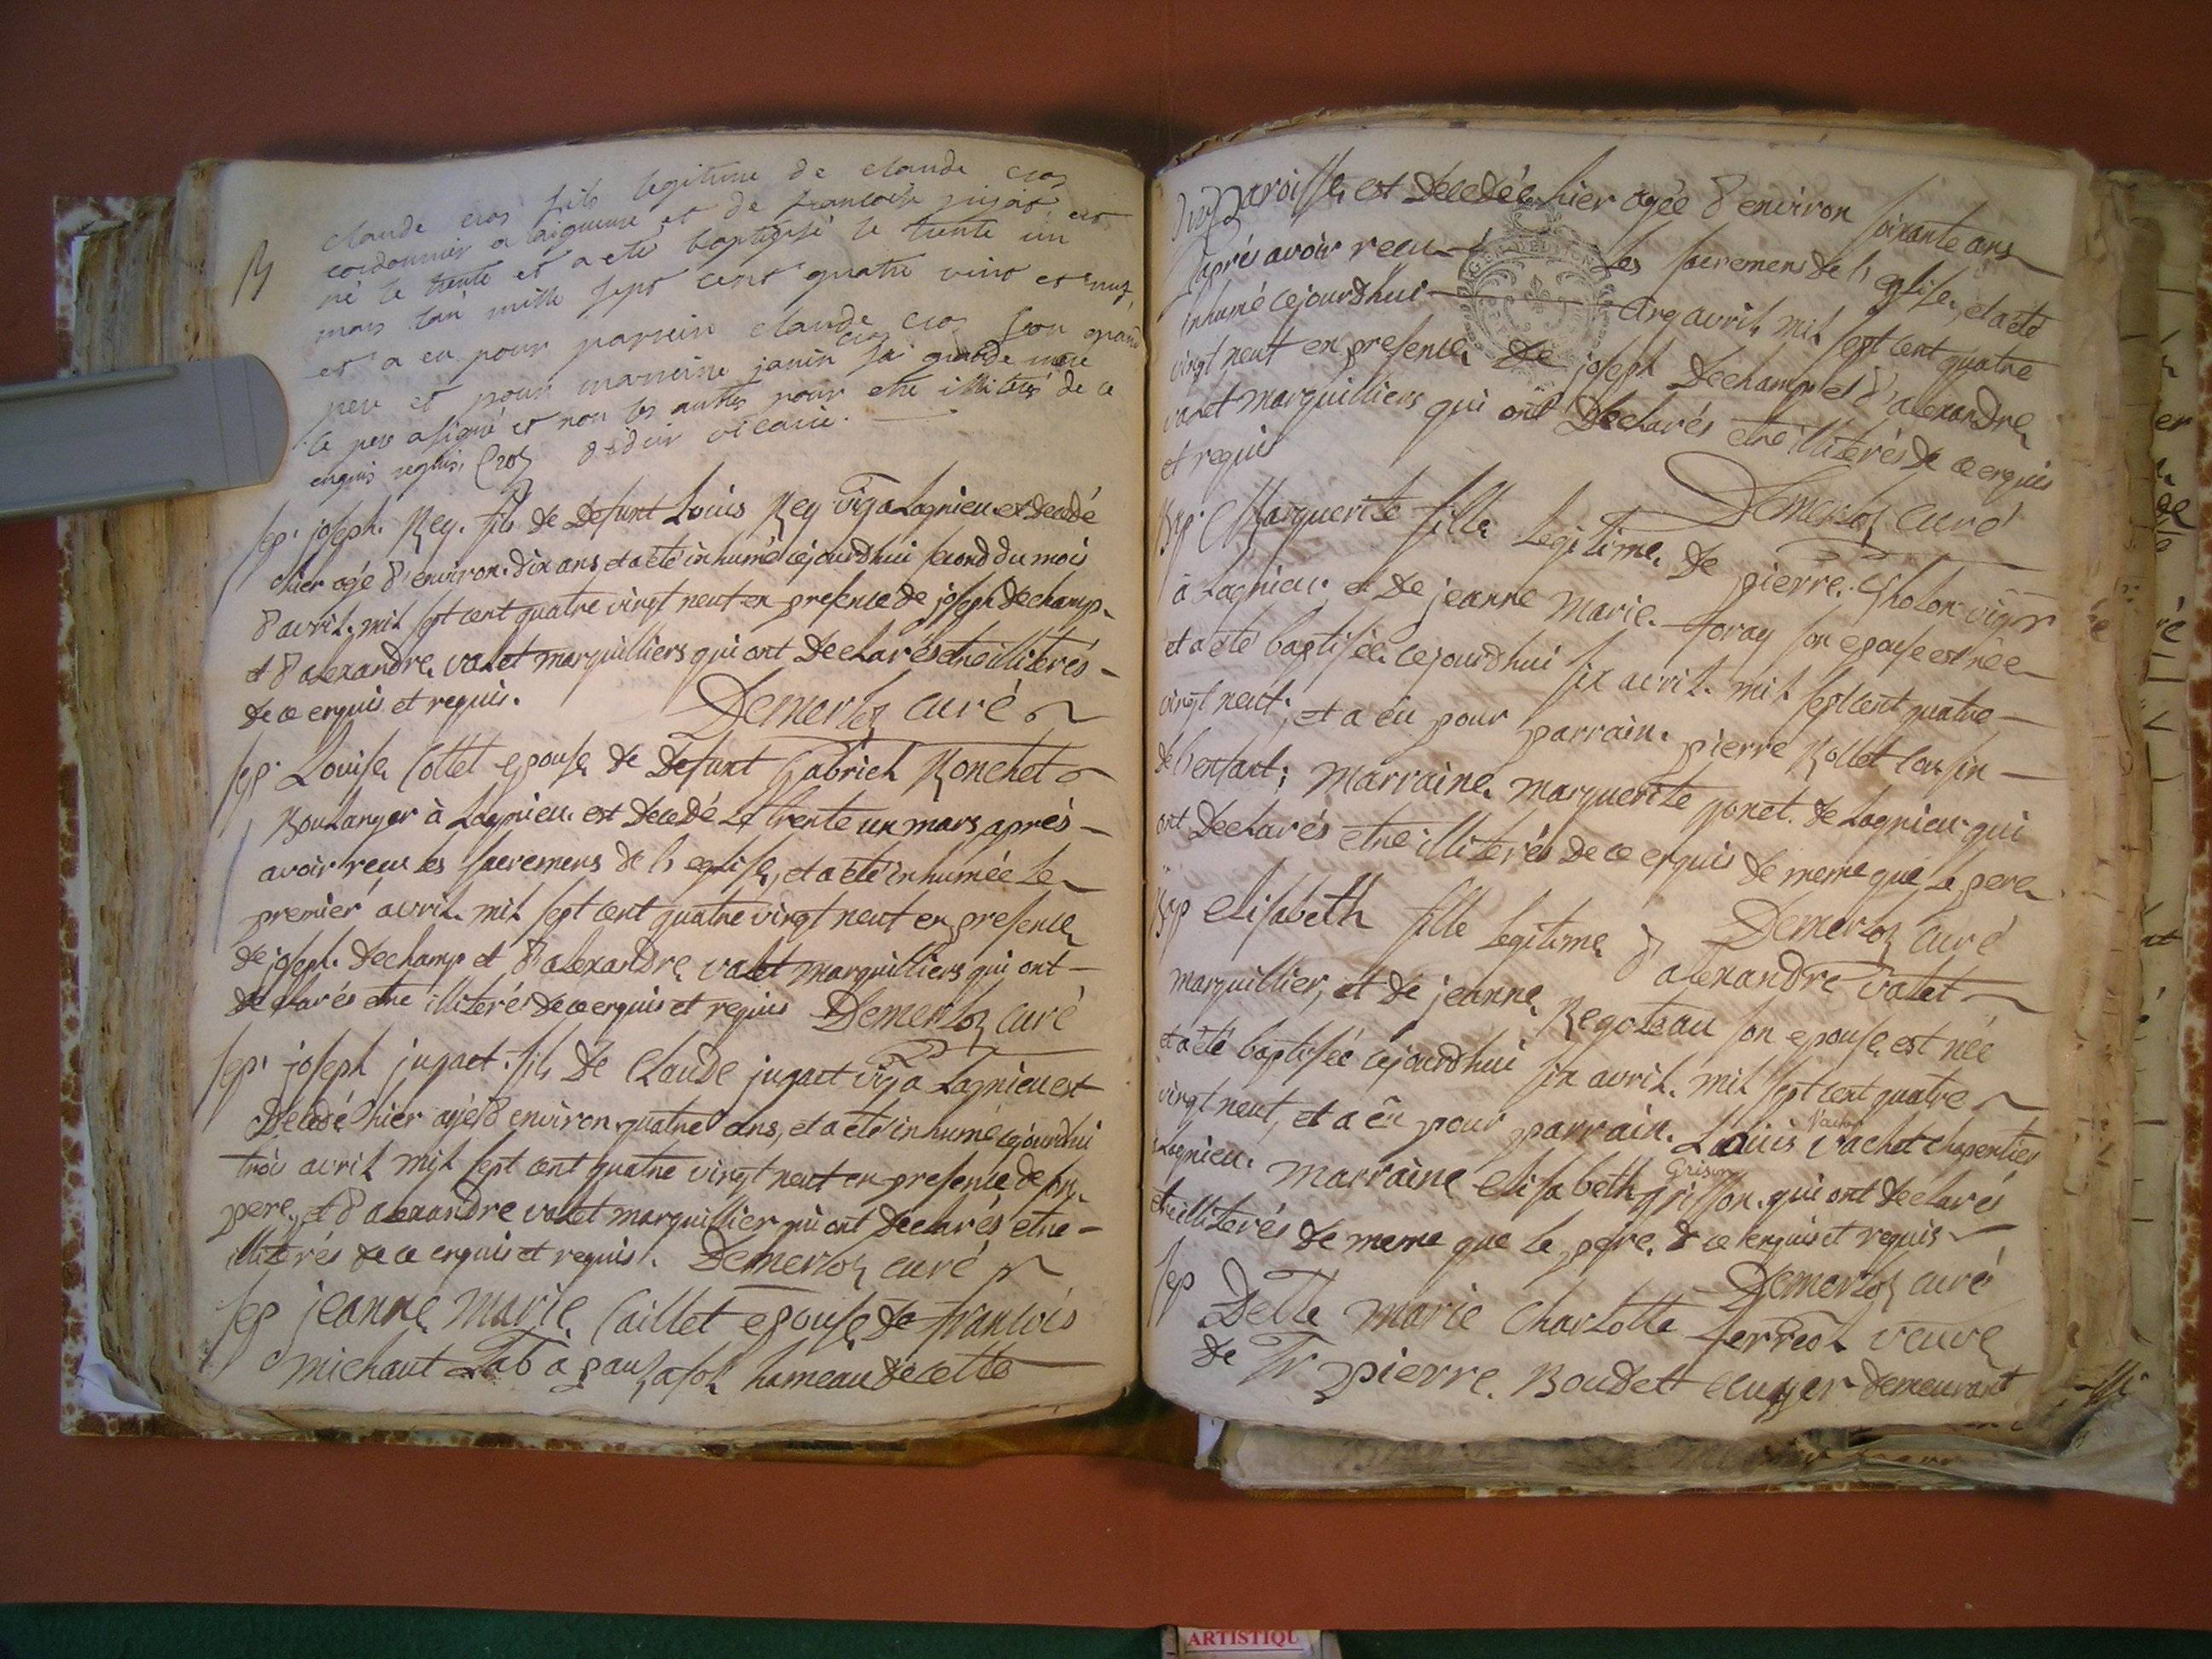 B
claude cros fils legitime de claude cros
cordonnier a laigneux et de francoise pujat est
né le trente et a eté baptisé le trente un
mars l'an mille sept cent quatre vint et nuf,
et a eu pour parrein claude cros son grand
pere et pour marreine janin cros sa grande mere
le pere a signé et non les autres pour etre illitéres de ce
enquis requis. Cros didier vicaire.
sep. joseph. Rey. fils de Defunt Louis Rey vig. a Lagnieu. est decedé
hier agé d'environ. dix ans, et a été inhumé cejourdhui second du mois
d'avril. mil sept cent quatre vingt neuf en presence de joseph dechamp.
et d'alexandre. valet marguilliers qui ont Declarés etre illiterés -
de ce enquis et requis. Demerloz curé
sep. Louise Collet epouse de Defunt Gabriel Ronchet
Boulanger à Lagnieu. est Decedé Le trente un mars, aprés -
avoir reçu les sacremens de l'eglise, et a été inhumée Le
premier avril. mil sept cent quatre vingt neuf en presence
de joseph. Dechamp et d'alexandre valet marguilliers qui ont -
declarés etre illiterés de ce enquis et requis Demerloz curé
sep. joseph jugaet. fils De Claude jugaet vig. a Lagnieu est
Decedé hier agé d'environ quatre ans, et a été inhumé cejourdhui
trois avril mil sept cent quatre vingt neuf en presence de son
pere, et d'alexandre valet marguillier qui ont declarés etre -
illiterés de ce enquis et requis. Demerloz curé
sep jeanne Marie Caillet epouse de francois
michaut Lab. a hameau de cette
paroisse, est Decedée hier agée d'environ soixante ans
aprés avoir recu les sacremens de l'eglise, et a été
inhumé cejourdhui cinq avril. mil sept cent quatre
vingt neuf en presence de joseph Dechamp et d'alexandre
valet marguilliers qui ont Declarés etre illiterés de ce enquis
et requis
Demerloz curé
Bap. Marguerite fille Legitime. De pierre. Cholon vigr
à Lagnieu. et de jeanne Marie. foray son epouse est née
et a été baptisée. cejourdhui six avril. mil sept cent quatre -
vingt neuf; et a eu pour parrain. pierre Rollet cousin -
de l'enfant; Marraine. marguerite ponet. de Lagnieu qui
ont Declarés etre illiterés de ce enquis de meme que le pere
Demerloz curé
Bap elisabeth fille Legitime d'alexandre valet
marguillier, et de jeanne Regoteau son epouse, est née
et a été baptisée cejourdhui six avril. mil sept cent quatre
vingt neuf, et a eu pour parrain. Louis Vachet charpentier
a Lagnieu. Marraine Elisabeth grisson. qui ont declarés
Grison
etre illiterés de meme que le pere. de ce enquis et requis
Demerloz curé
sep Delle Marie Charlotte ferreol veuve
de Sr pierre. Boudet demeurant
ARTISTIQU